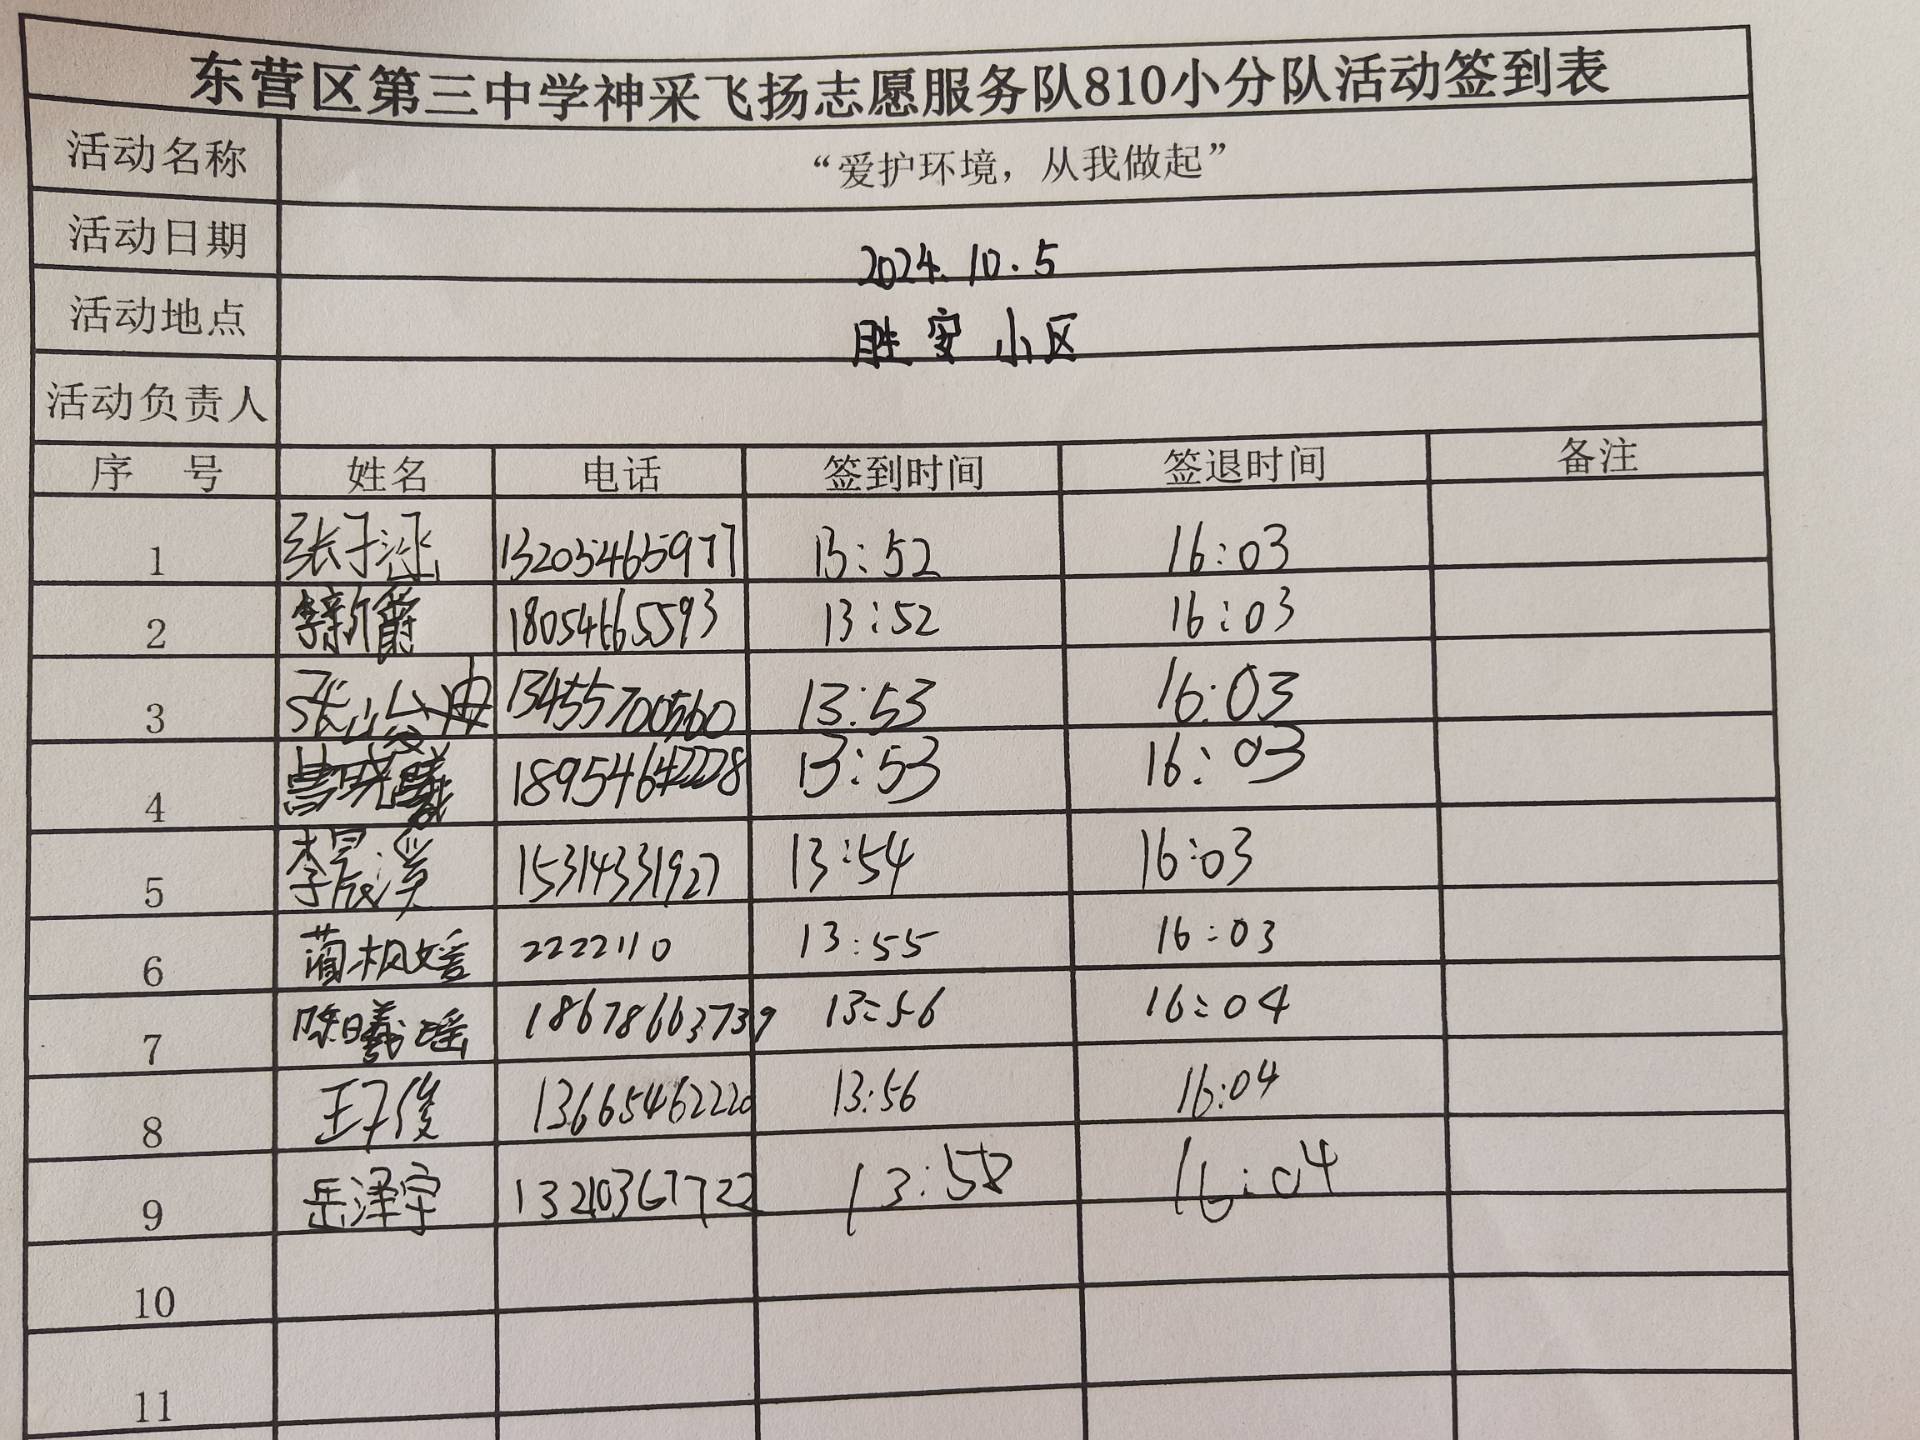 东营区第三中学神采飞扬志愿服务队810小分队活动签到表
活动名称 “爱护环境，从我做起”
活动日期 2024.10.5
活动地点 胜安小区
活动负责人
序 号 姓名 电话 签到时间 签退时间 备注
1 张子涵 13205465977 13:52 16:03
2 李新爵 18054665593 13:52 16:03
3 张 13455700560 13:53 16:03
4 18954642228 13:53 16:03
5 李晨溪 15314331927 13:54 16:03
6 蔺枫媛 2222110 13:55 16:03
7 陈曦瑶 18678663739 13:56 16:04
8 王子俊 13665462220 13:56 16:04
9 岳泽宇 13210367722 13:58 16:04
10
11